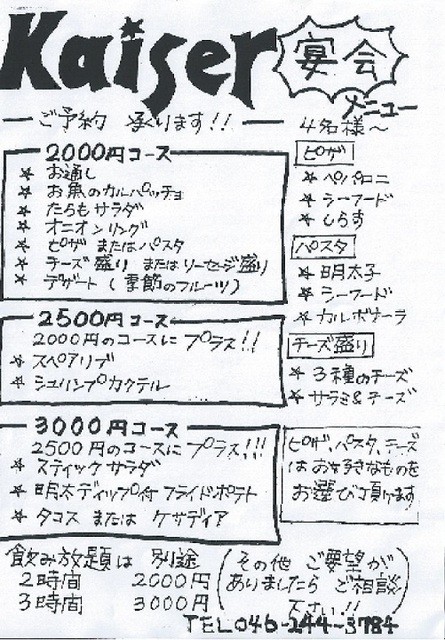 Kaiser
宴会
メニュー
ー ご予約 承ります!! ー
4名様〜
2000円コース
★ お通し
★ お魚のカルパッチョ
★ たらもサラダ
★ オニオンリング
★ ピザ または パスタ
★ チーズ盛り または ソーセージ盛り
★ デザート (季節のフルーツ)
2500円コース
2000円のコースに プラス!!
★ スペアリブ
★ シュリンプカクテル
3000円コース
2500円のコースに プラス!!!
★ スティックサラダ
★ 明太ディップ付 フライドポテト
★ タコス または ケサディア
ピザ
★ ペパロニ
★ シーフード
★ しらす
パスタ
★ 明太子
★ シーフード
★ カルボナーラ
チーズ盛り
★ 3種のチーズ
★ サラミ&チーズ
ピザ、パスタ、チーズ
はお好きなものを
お選び頂けます
飲み放題は 別途
2時間 2000円
3時間 3000円
(その他 ご要望が
ありましたら ご相談
下さい!!)
TEL 046-244-3784